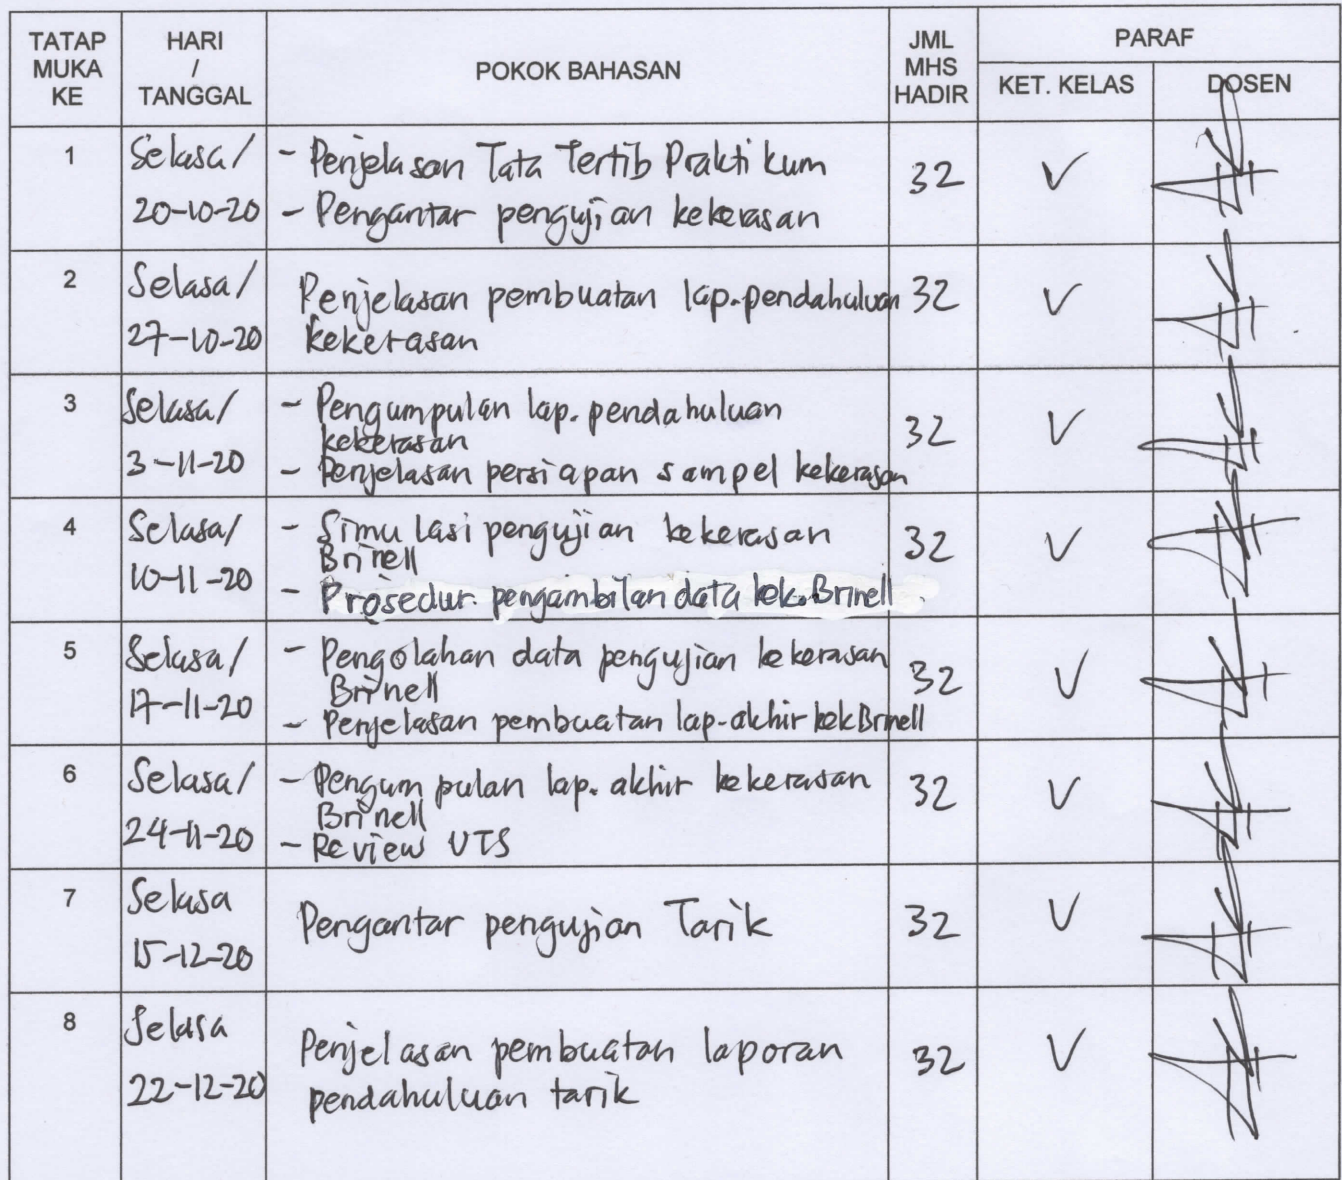 TATAP MUKA KE
HARI / TANGGAL
POKOK BAHASAN
JML MHS HADIR
PARAF
KET. KELAS
DOSEN
1
Selasa/
20-10-20
- Penjelasan Tata Tertib Praktikum
- Pengantar pengujian kekerasan
32
2
Selasa/
27-10-20
Penjelasan pembuatan lap.pendahuluan
kekerasan
32
3
Selasa/
3-11-20
- Pengumpulan lap. pendahuluan
kekerasan
- Penjelasan persiapan sampel kekerasan
32
4
Selasa/
10-11-20
- Simulasi pengujian kekerasan
Brinell
- Prosedur pengambilan data kek.Brinell
32
5
Selasa/
17-11-20
- Pengolahan data pengujian kekerasan
Brinell
- Penjelasan pembuatan lap-akhir kek Brinell
32
6
Selasa/
24-11-20
- Pengumpulan lap. akhir kekerasan
Brinell
- Review UTS
32
7
Selasa
15-12-20
Pengantar pengujian Tarik
32
8
Selasa
22-12-20
Penjelasan pembuatan laporan
pendahuluan tarik
32